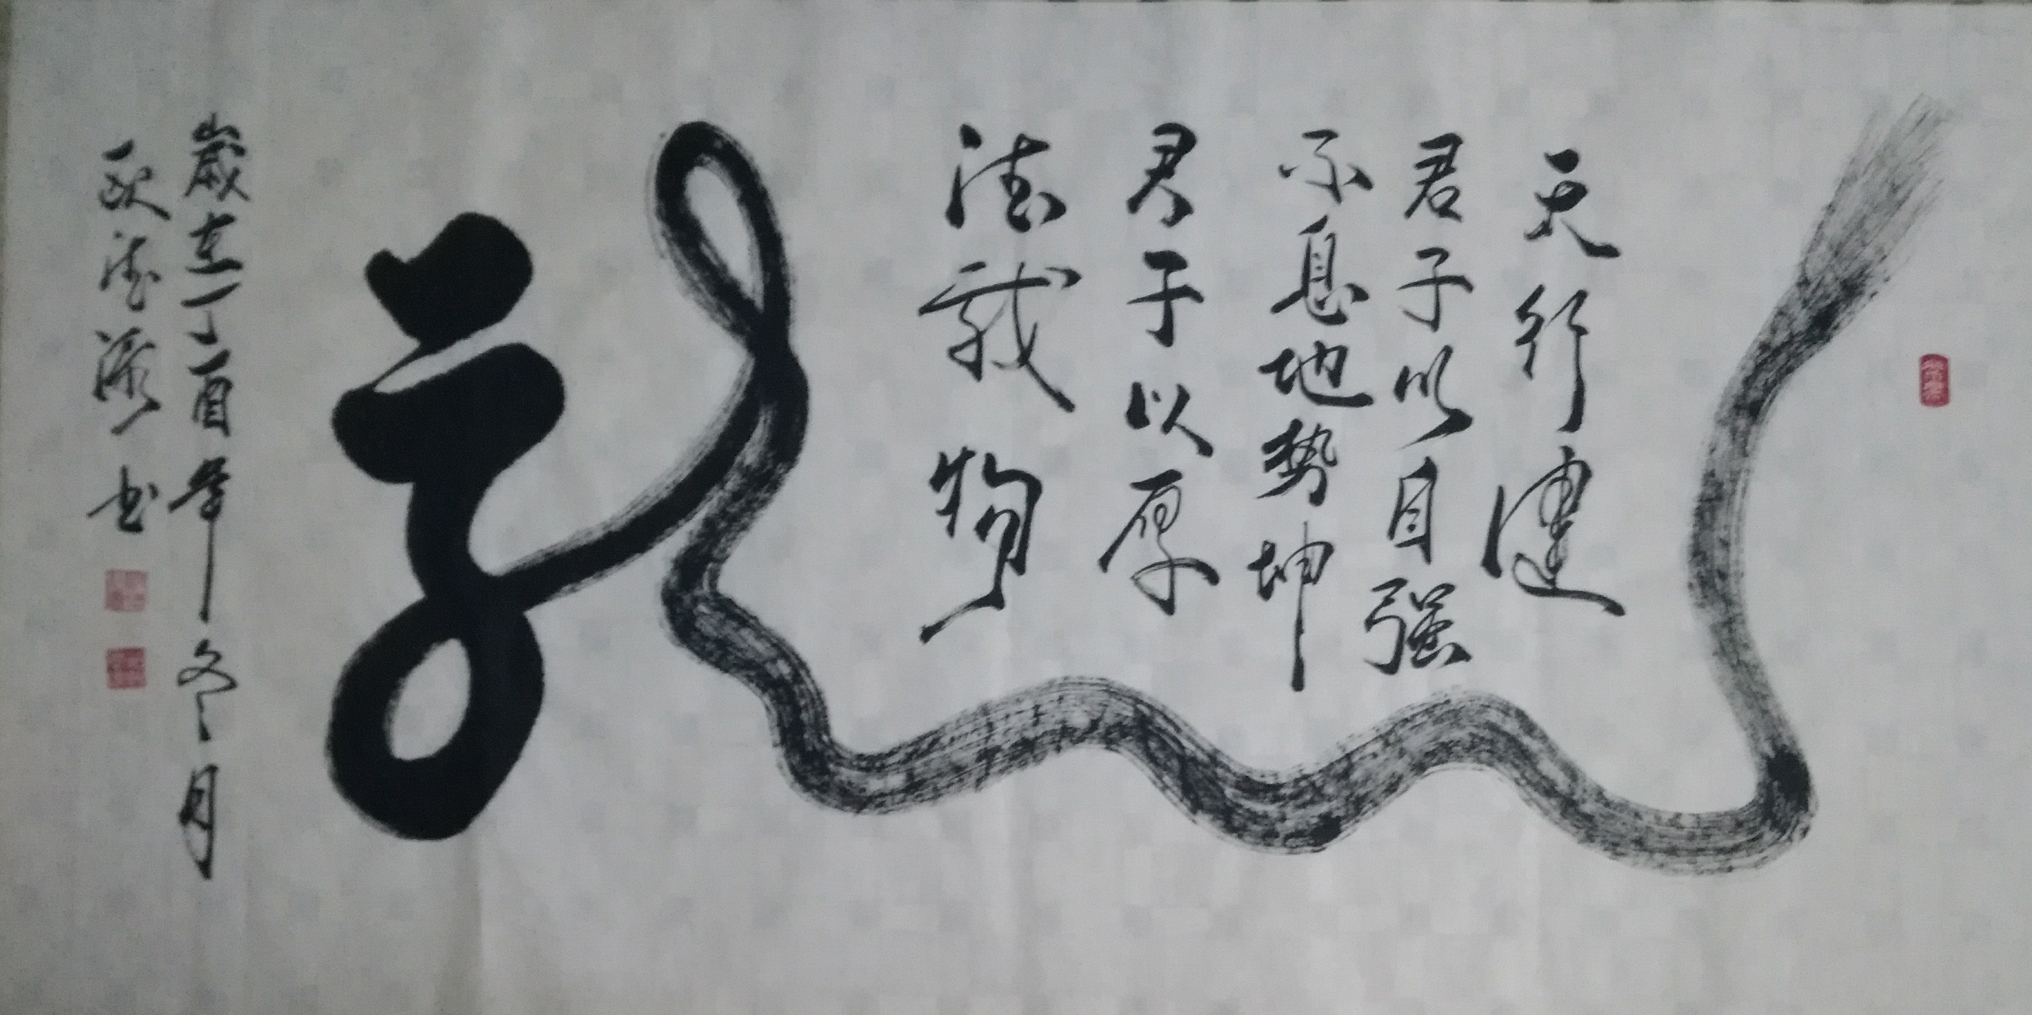 天行健
君子以自强
不息地势坤
君子以厚
德载物
龙
歲在丁酉年冬月
德 书